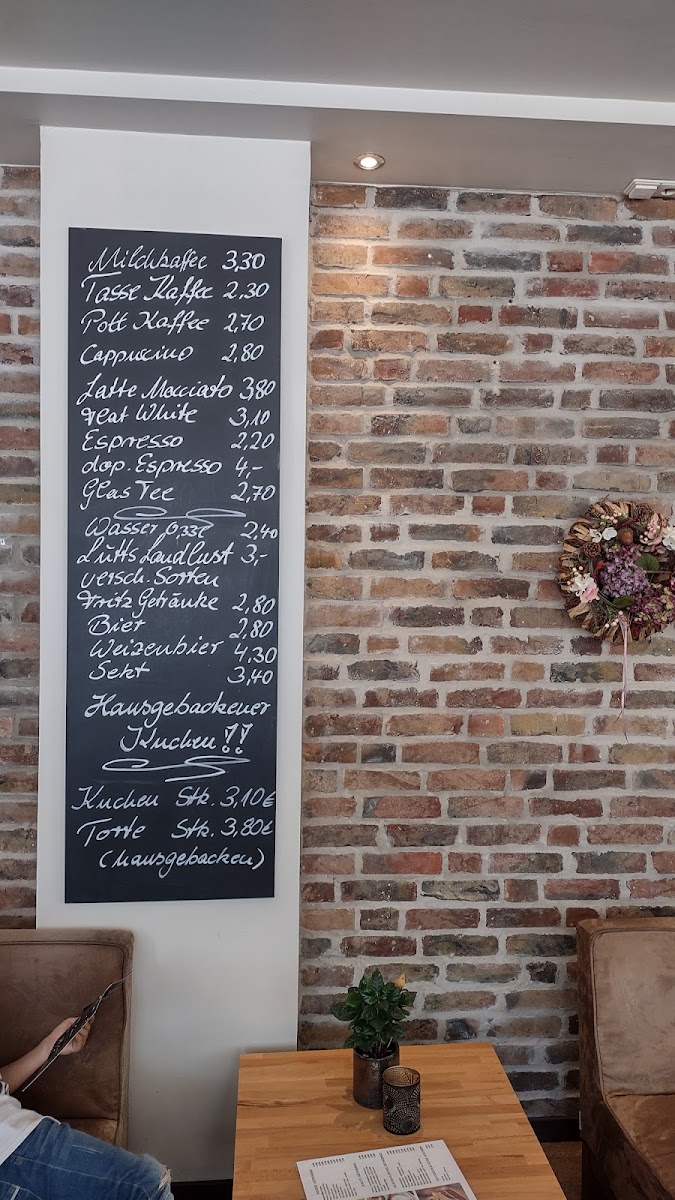 Milchkaffee 3,30
Tasse Kaffee 2,30
Pott Kaffee 2,70
Cappuccino 2,80
Latte Macciato 3,80
Flat White 3,10
Espresso 2,20
dop. Espresso 4,-
Glas Tee 2,70
Wasser 0,33l 2,40
Lütts Landlust 3,-
versch. Sorten
Fritz Getränke 2,80
Bier 2,80
Weizenbier 4,30
Sekt 3,40
Hausgebackener
Kuchen !!
Kuchen Stk. 3,10€
Torte Stk. 3,80€
(hausgebacken)